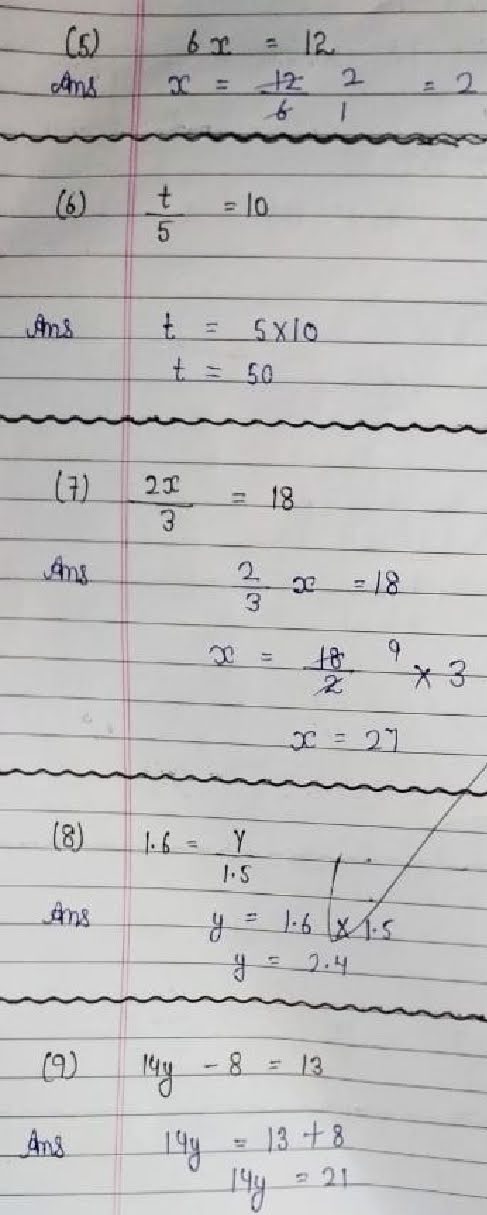 (5) 6x = 12
Ans x = 12/6 2/1 = 2
(6) t/5 = 10
Ans t = 5×10
t = 50
(7) 2x/3 = 18
Ans 2/3 x = 18
x = 18/2 9 × 3
x = 27
(8) 1.6 = Y/1.5
Ans y = 1.6 × 1.5
y = 2.4
(9) 14y - 8 = 13
Ans 14y = 13 + 8
14y = 21